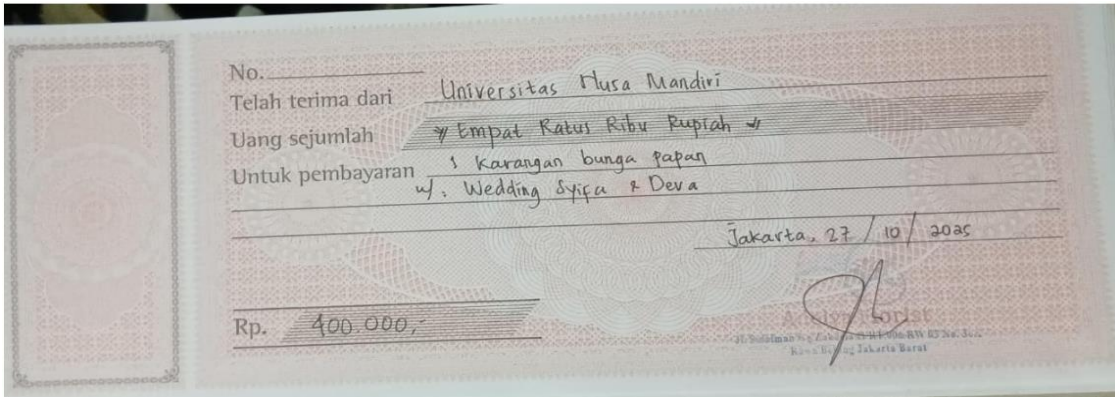 No.
Telah terima dari Universitas Nusa Mandiri
Uang sejumlah Empat Ratus Ribu Rupiah
Untuk pembayaran 1 Karangan bunga papan
u/. Wedding Syifa & Deva
Jakarta, 27 / 10 / 2025
Rp. 400.000,-
Florist
Jakarta Barat